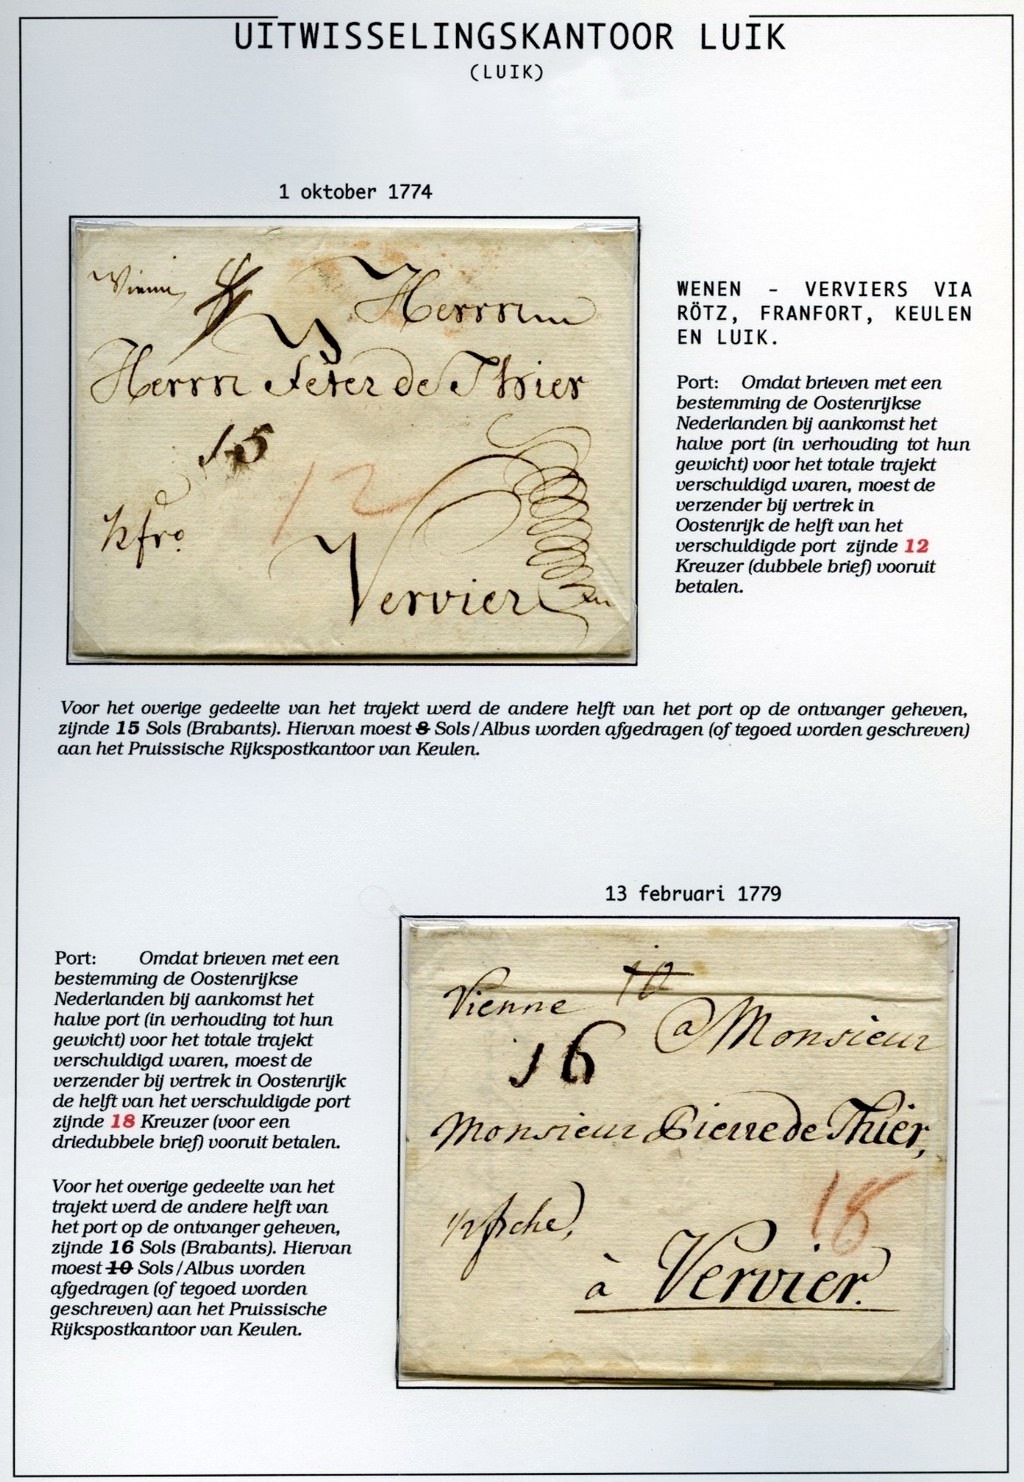 UITWISSELINGSKANTOOR LUIK
(LUIK)
1 oktober 1774
Herrn
Herrn Peter de Thier
15
12
Vervier
WENEN - VERVIERS VIA
RÖTZ, FRANFORT, KEULEN
EN LUIK.
Port: Omdat brieven met een
bestemming de Oostenrijkse
Nederlanden bij aankomst het
halve port (in verhouding tot hun
gewicht) voor het totale trajekt
verschuldigd waren, moest de
verzender bij vertrek in
Oostenrijk de helft van het
verschuldigde port zijnde 12
Kreuzer (dubbele brief) vooruit
betalen.
Voor het overige gedeelte van het trajekt werd de andere helft van het port op de ontvanger geheven,
zijnde 15 Sols (Brabants). Hiervan moest 8 Sols/Albus worden afgedragen (of tegoed worden geschreven)
aan het Pruissische Rijkspostkantoor van Keulen.
13 februari 1779
Port: Omdat brieven met een
bestemming de Oostenrijkse
Nederlanden bij aankomst het
halve port (in verhouding tot hun
gewicht) voor het totale trajekt
verschuldigd waren, moest de
verzender bij vertrek in Oostenrijk
de helft van het verschuldigde port
zijnde 18 Kreuzer (voor een
driedubbele brief) vooruit betalen.
Voor het overige gedeelte van het
trajekt werd de andere helft van
het port op de ontvanger geheven,
zijnde 16 Sols (Brabants). Hiervan
moest 10 Sols/Albus worden
afgedragen (of tegoed worden
geschreven) aan het Pruissische
Rijkspostkantoor van Keulen.
Vienne 10
a Monsieur
16
Monsieur Pierre de Thier,
18
à Vervier.